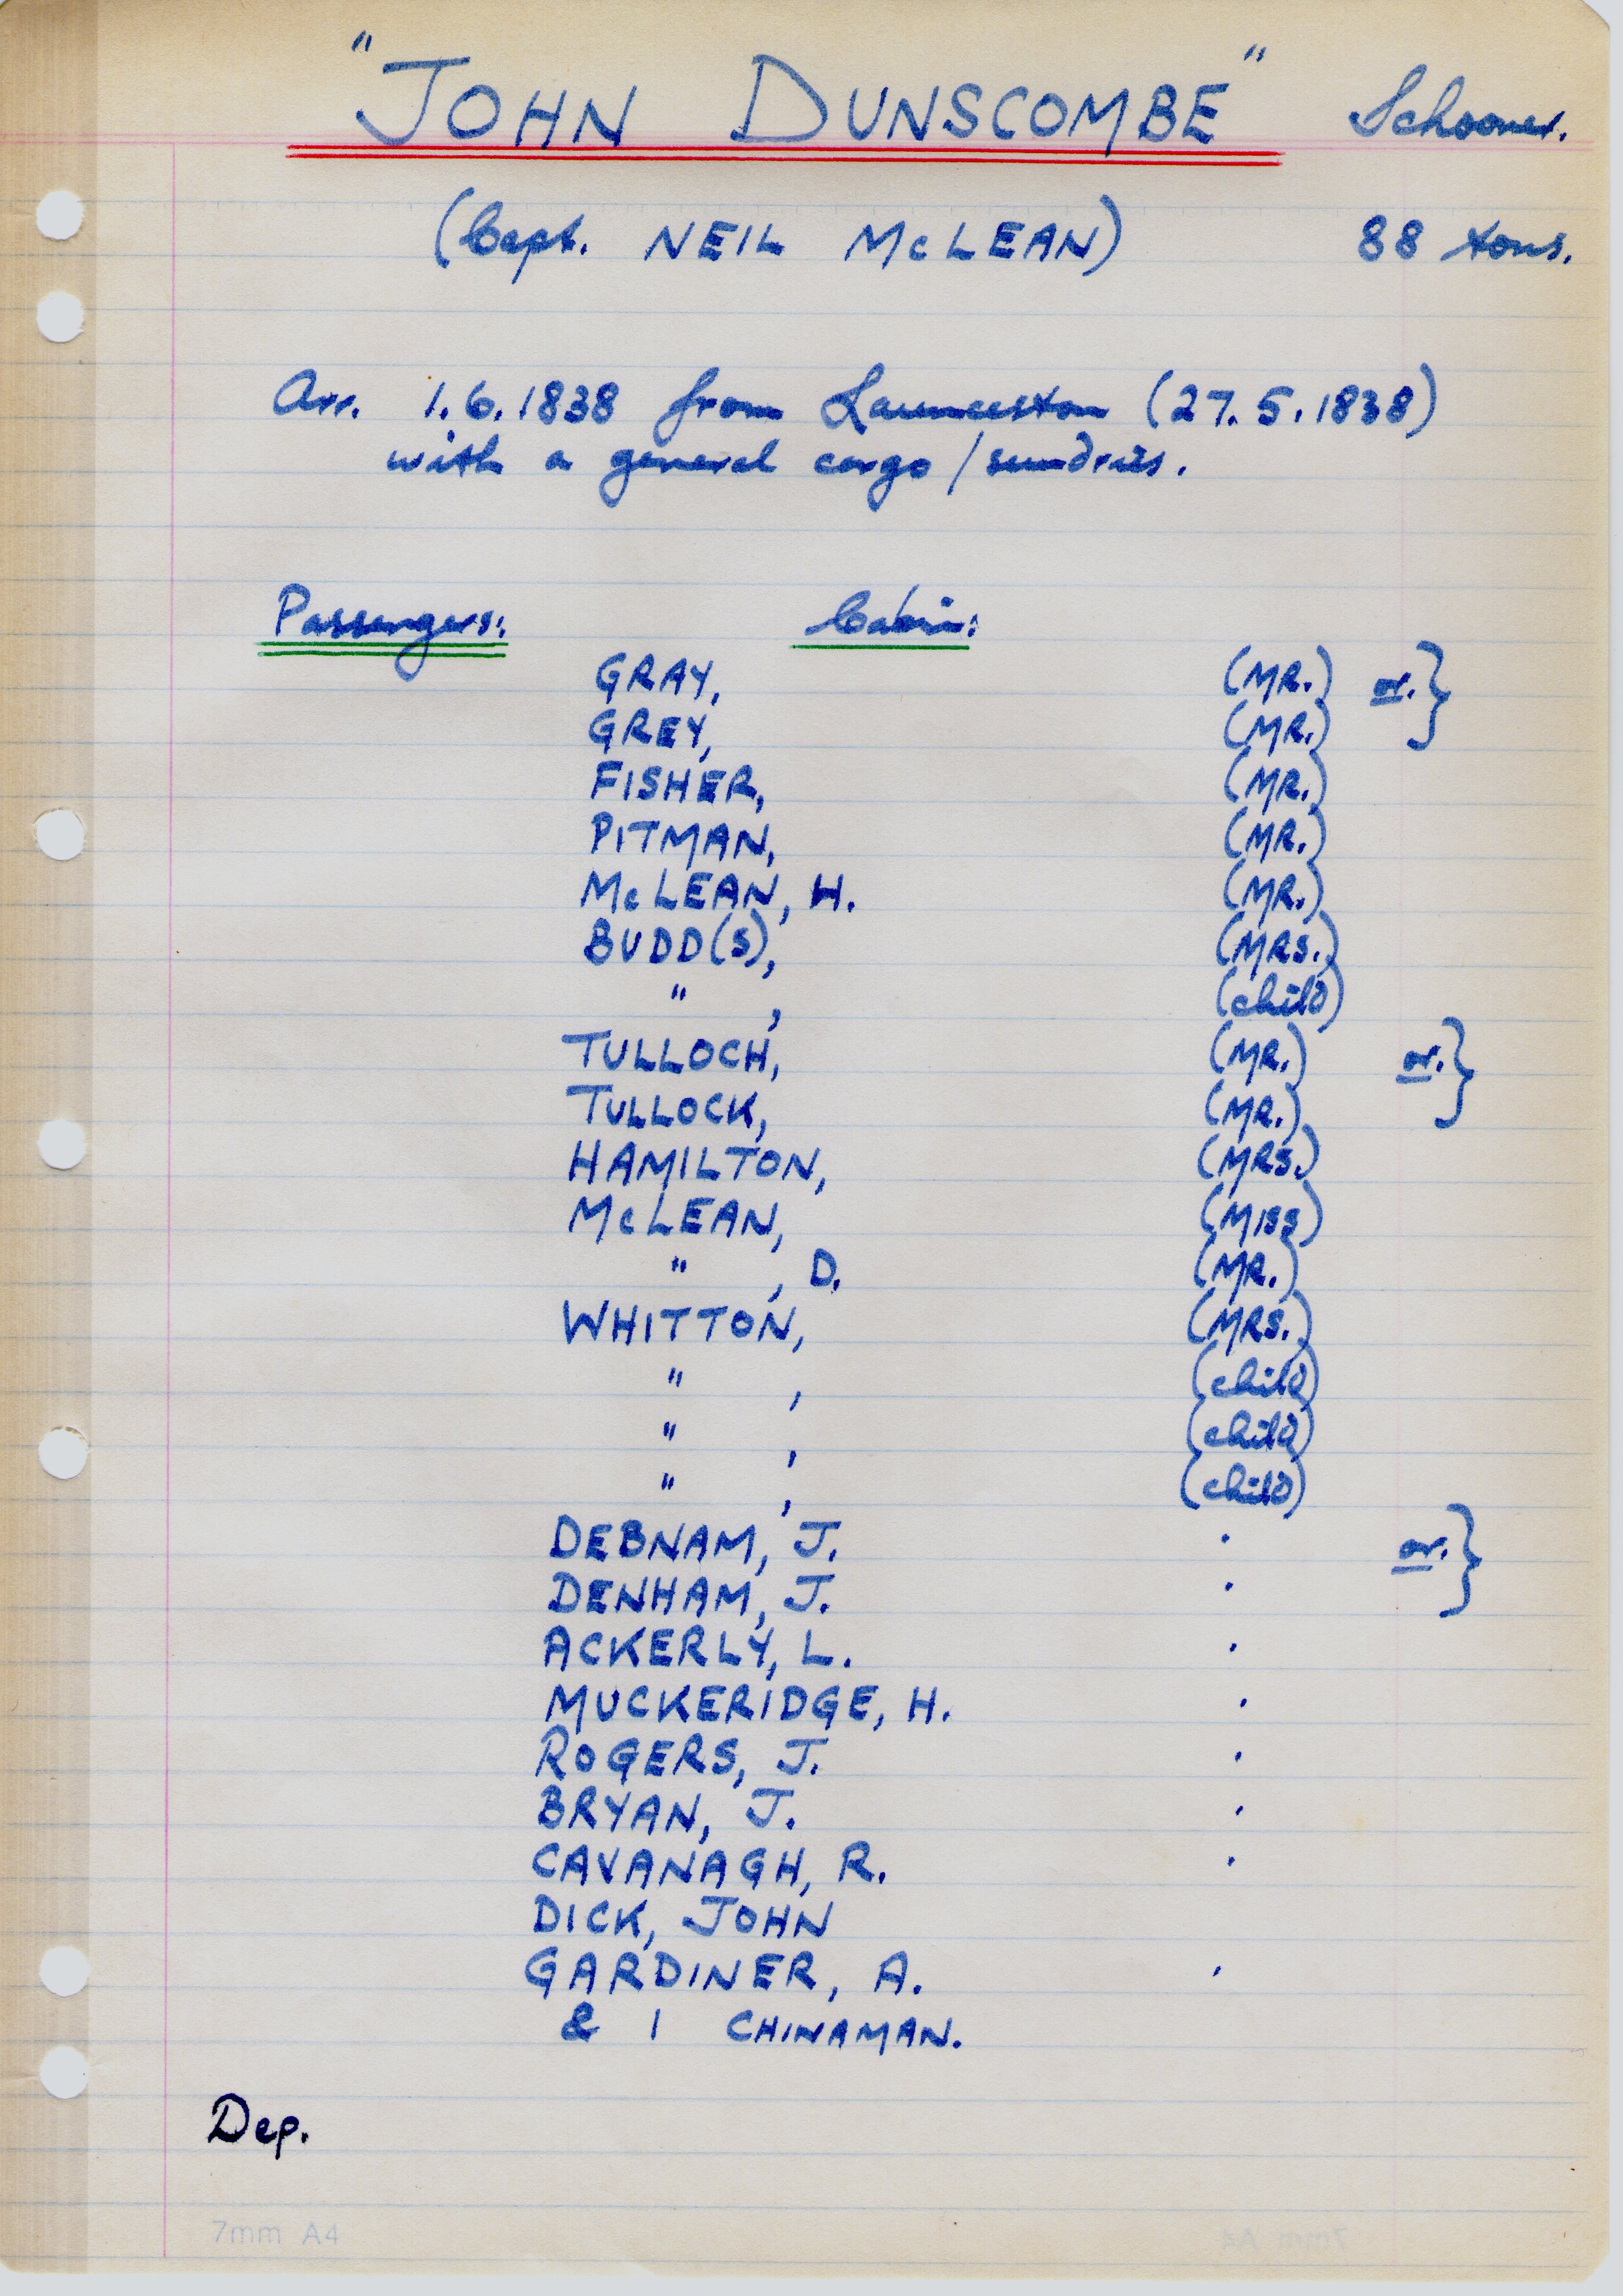 "JOHN DUNSCOMBE" Schooner.
(Capt. NEIL McLEAN) 88 tons.
Arr. 1.6.1838 from Launceston (27.5.1838)
with a general cargo/sundries.
Passengers: Cabin:
GRAY, (MR.) or. }
GREY, (MR.)
FISHER, (MR.)
PITMAN, (MR.)
McLEAN, H. (MR.)
BUDD(S), (MRS.)
" , (child)
TULLOCH, (MR.) or. }
TULLOCK, (MR.)
HAMILTON, (MRS.)
McLEAN, (MISS)
" , D. (MR.)
WHITTON, (MRS.)
" , (child)
" , (child)
" , (child)
DEBNAM, J. . or. }
DENHAM, J. .
ACKERLY, L. .
MUCKERIDGE, H. .
ROGERS, J. .
BRYAN, J. .
CAVANAGH, R. .
DICK, JOHN
GARDINER, A. .
& 1 CHINAMAN.
Dep.
7mm A4